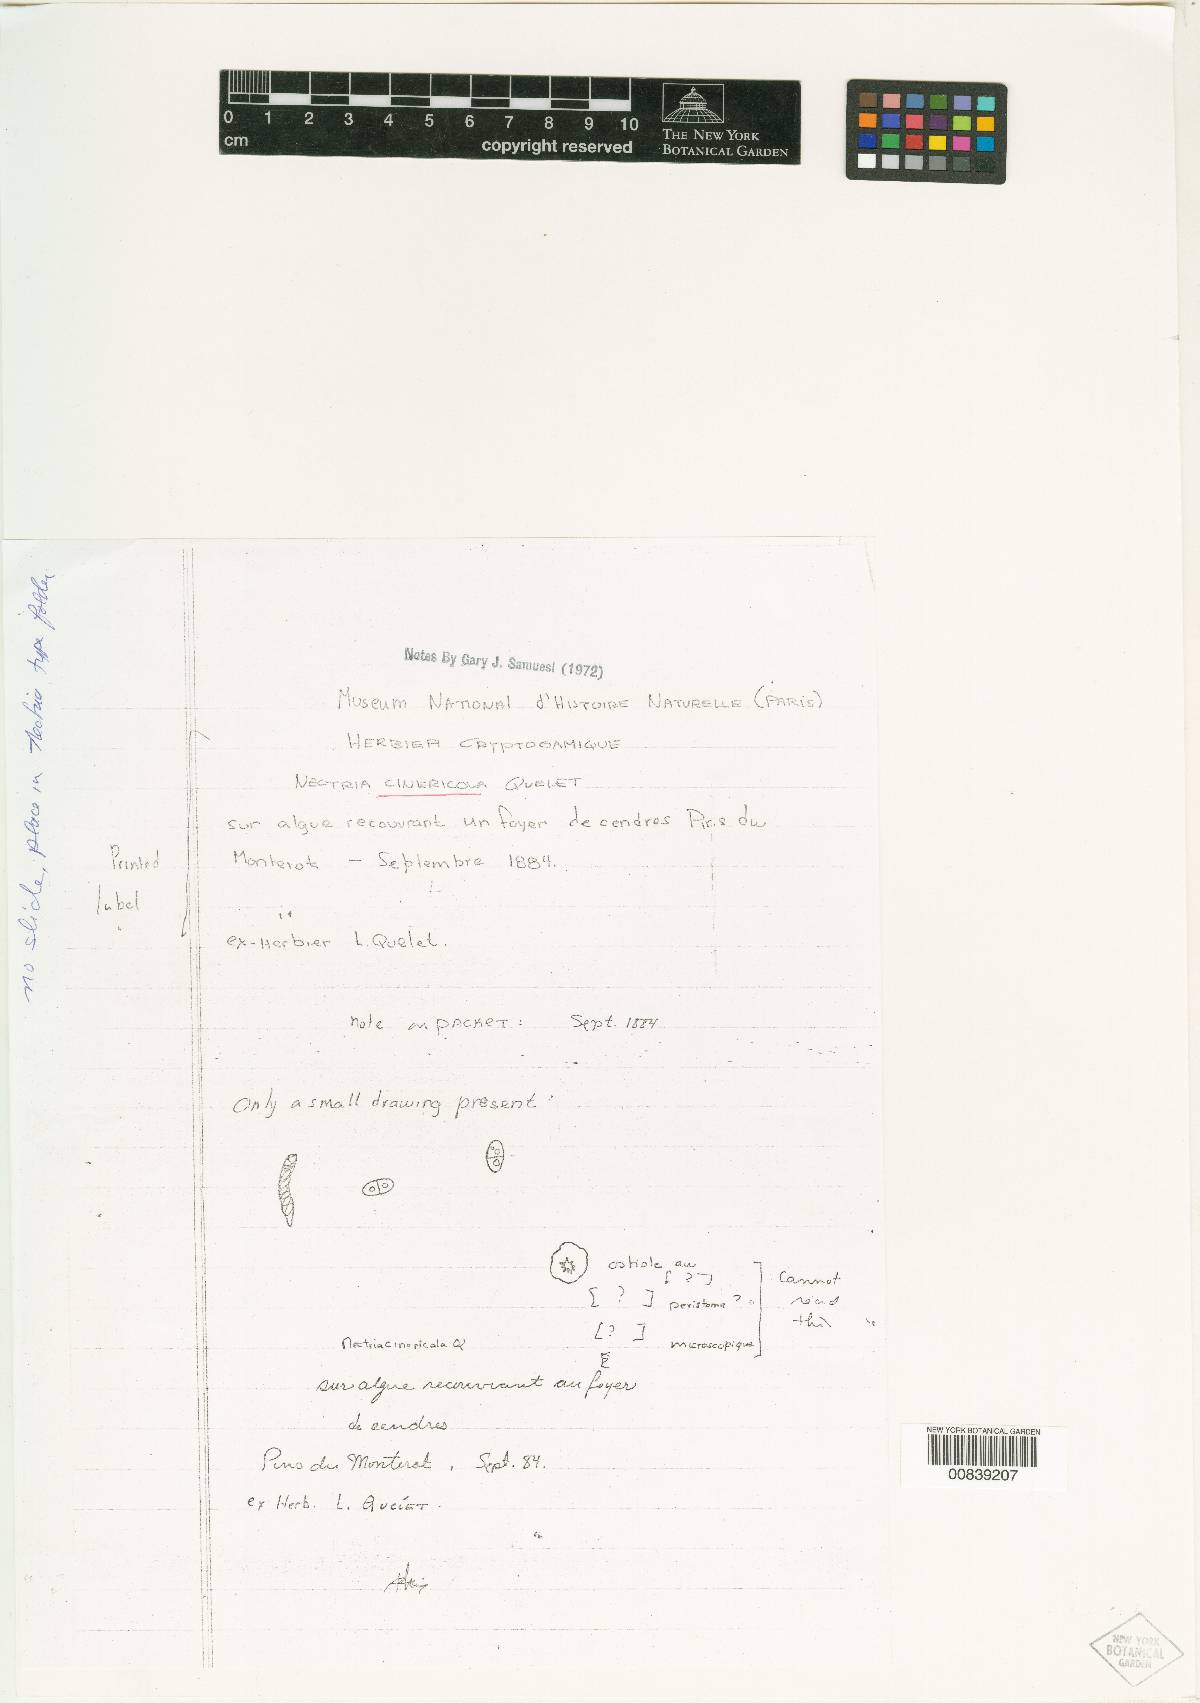 0 1 2 3 4 5 6 7 8 9 10
cm
copyright reserved
THE NEW YORK
BOTANICAL GARDEN
no slide, place in Nectria type folder
Notes By Gary J. Samuesl (1972)
MUSEUM NATIONAL d'HISTOIRE NATURELLE (PARIS)
HERBIER CRYPTOGAMIQUE
NECTRIA CINERICOLA QUELET
sur algue recouvrant un foyer de cendres Pins du
Monterot - Septembre 1884.
Printed
label
ex-Herbier L. Quelet.
note on PACKET: Sept. 1884
Only a small drawing present:
ostiole au
[?]
[ ? ] peristome ?
[? ] microscopique
Cannot
read
this
Nectria cinericola Q
sur algue recouvrant au foyer
de cendres
Pins du Monterot, Sept. 84.
ex Herb. L. QUELET.
NEW YORK BOTANICAL GARDEN
00839207
NEW YORK
BOTANICAL
GARDEN